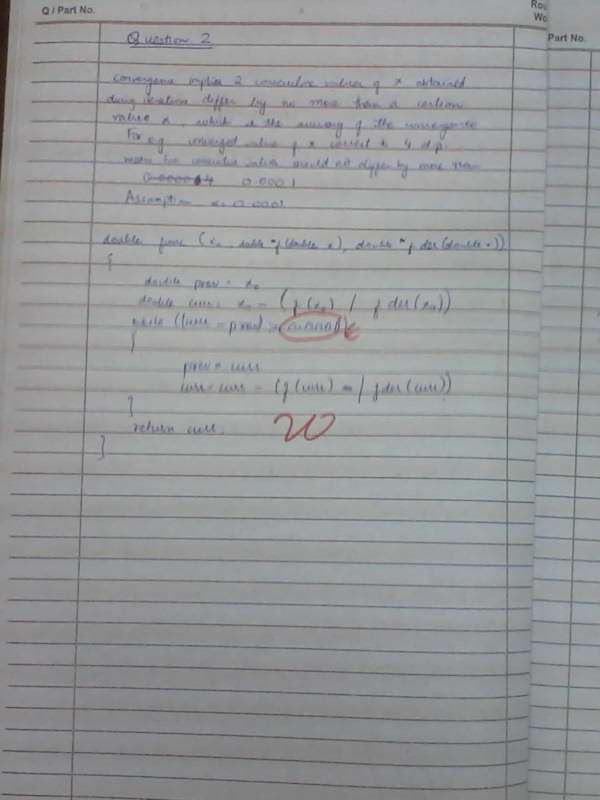 Q / Part No.
Rou
Wo
Part No.
Question 2
Convergence implies 2 consecutive values of x obtained
during iteration differ by no more than a certain
value α which is the accuracy of the convergence
For e.g. converged value of x correct to 4 d.p.
means two consecutive values should not differ by more than
0.0001
Assumption α = 0.0001
double func (x₀, double *f(double x), double *f der(double x))
{
double prev = x₀
double curr = x₀ - (f(x₀) / f der(x₀))
while ((curr - prev) > 0.0001)
{
prev = curr
curr = curr - (f(curr) / f der(curr))
}
return curr;
}
20